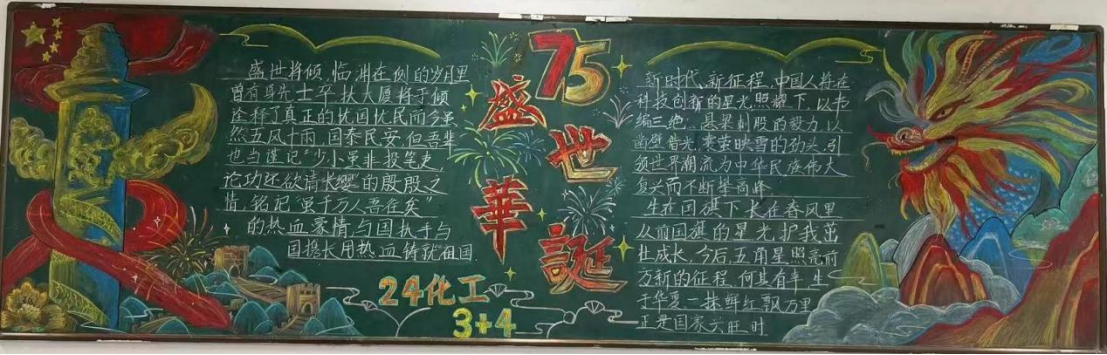 盛世将倾,临渊在侧的岁月里
曾有身先士卒,扶大厦将于倾
诠释了真正的忧国忧民而今虽
然五风十雨,国泰民安,但吾辈
也当谨记"少小虽非投笔吏
论功还欲请长缨"的殷殷之
情,铭记"虽千万人吾往矣"
的热血豪情,与国执手与
国携长用热血铸就祖国
75
盛世華誕
24化工
3+4
新时代,新征程,中国人将在
科技创新的星光照耀下,以韦
编三绝,悬梁刺股的毅力,以
凿壁借光,囊萤映雪的劲头,引
领世界潮流为中华民族伟大
复兴而不断攀高峰
生在国旗下长在春风里
从前国旗的星光,护我茁
壮成长,今后,五角星照亮前
方新的征程,何其有幸,生
于华夏一抹鲜红飘万里
正是国家兴旺时